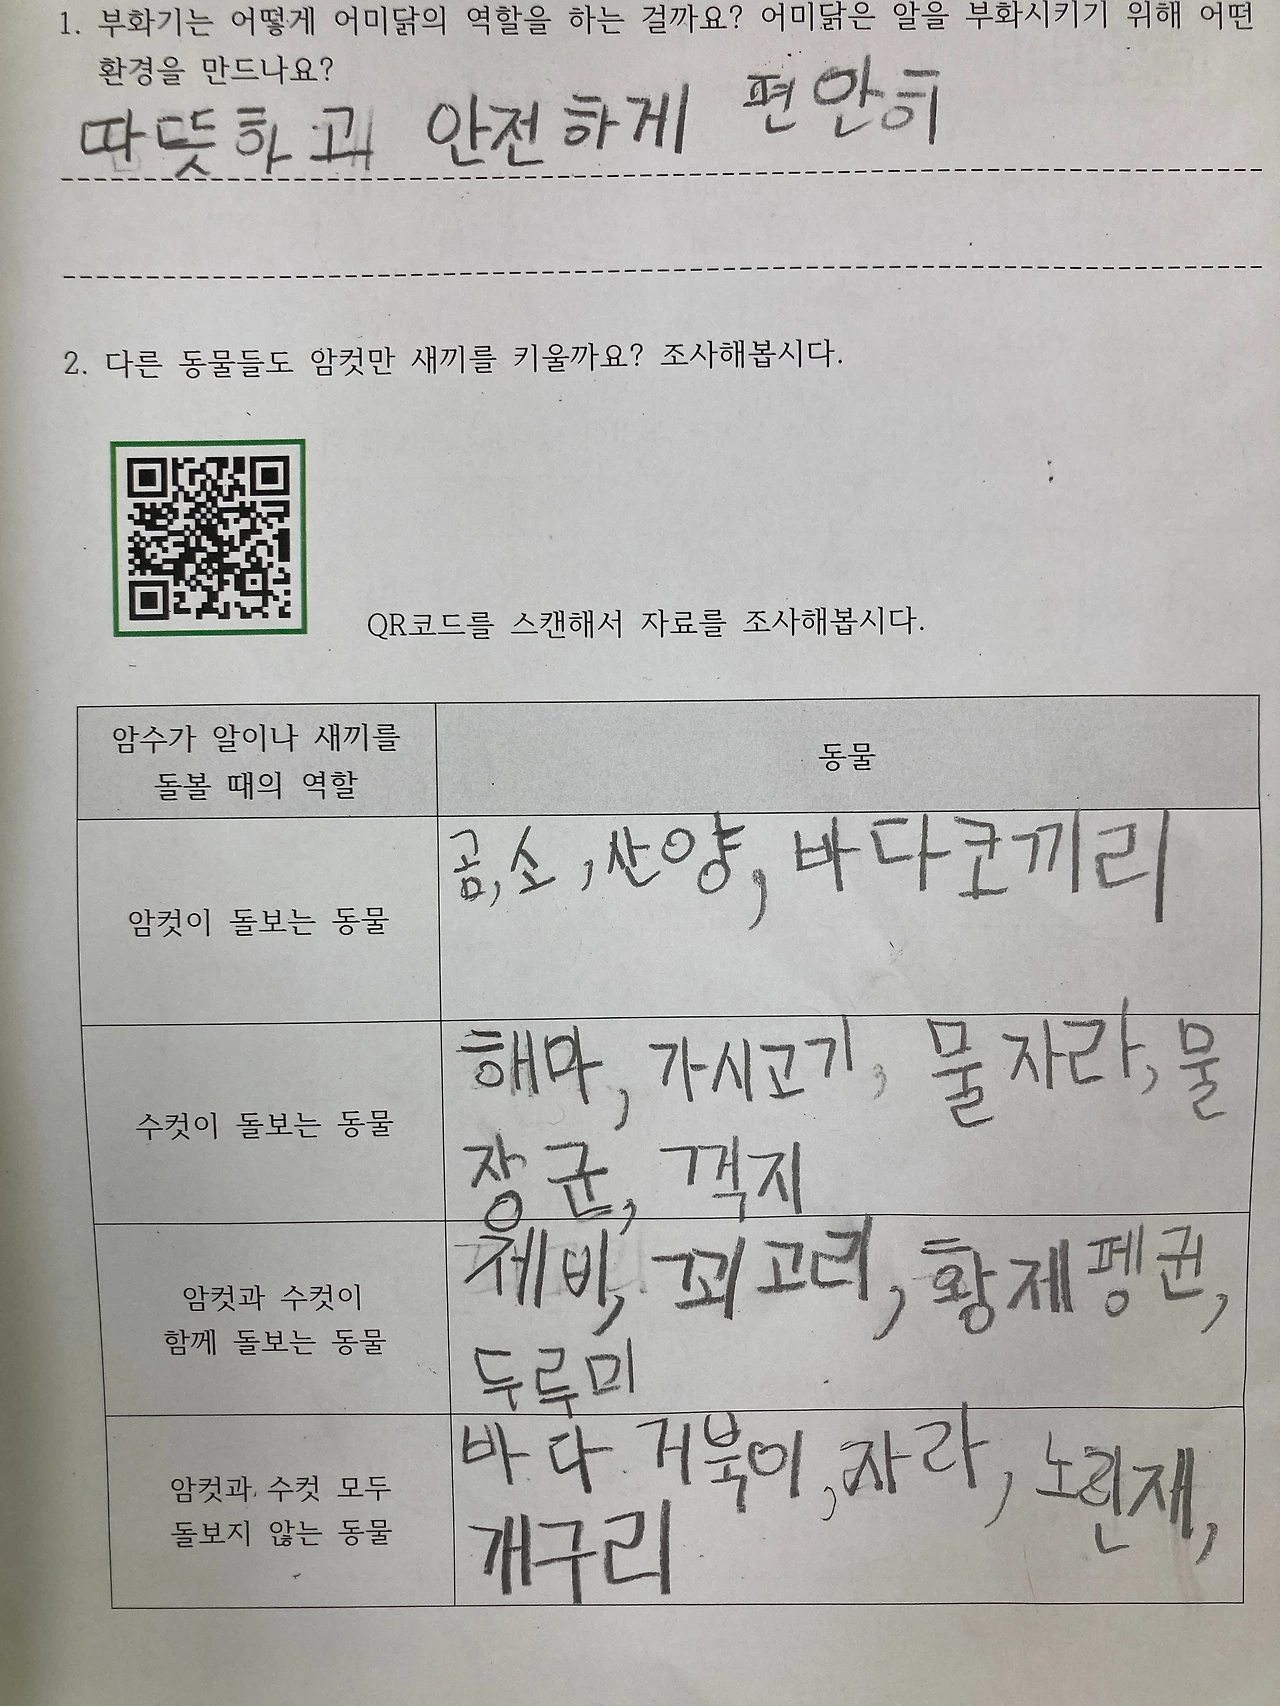 1. 부화기는 어떻게 어미닭의 역할을 하는 걸까요? 어미닭은 알을 부화시키기 위해 어떤
환경을 만드나요?
따뜻하고 안전하게 편안히
2. 다른 동물들도 암컷만 새끼를 키울까요? 조사해봅시다.
QR코드를 스캔해서 자료를 조사해봅시다.
암수가 알이나 새끼를
돌볼 때의 역할
동물
암컷이 돌보는 동물
곰, 소, 산양, 바다코끼리
수컷이 돌보는 동물
해마, 가시고기, 물자라, 물
장군, 꺽지
암컷과 수컷이
함께 돌보는 동물
제비, 꾀고리, 황제펭귄,
두루미
암컷과 수컷 모두
돌보지 않는 동물
바다거북이, 자라, 노린재,
개구리